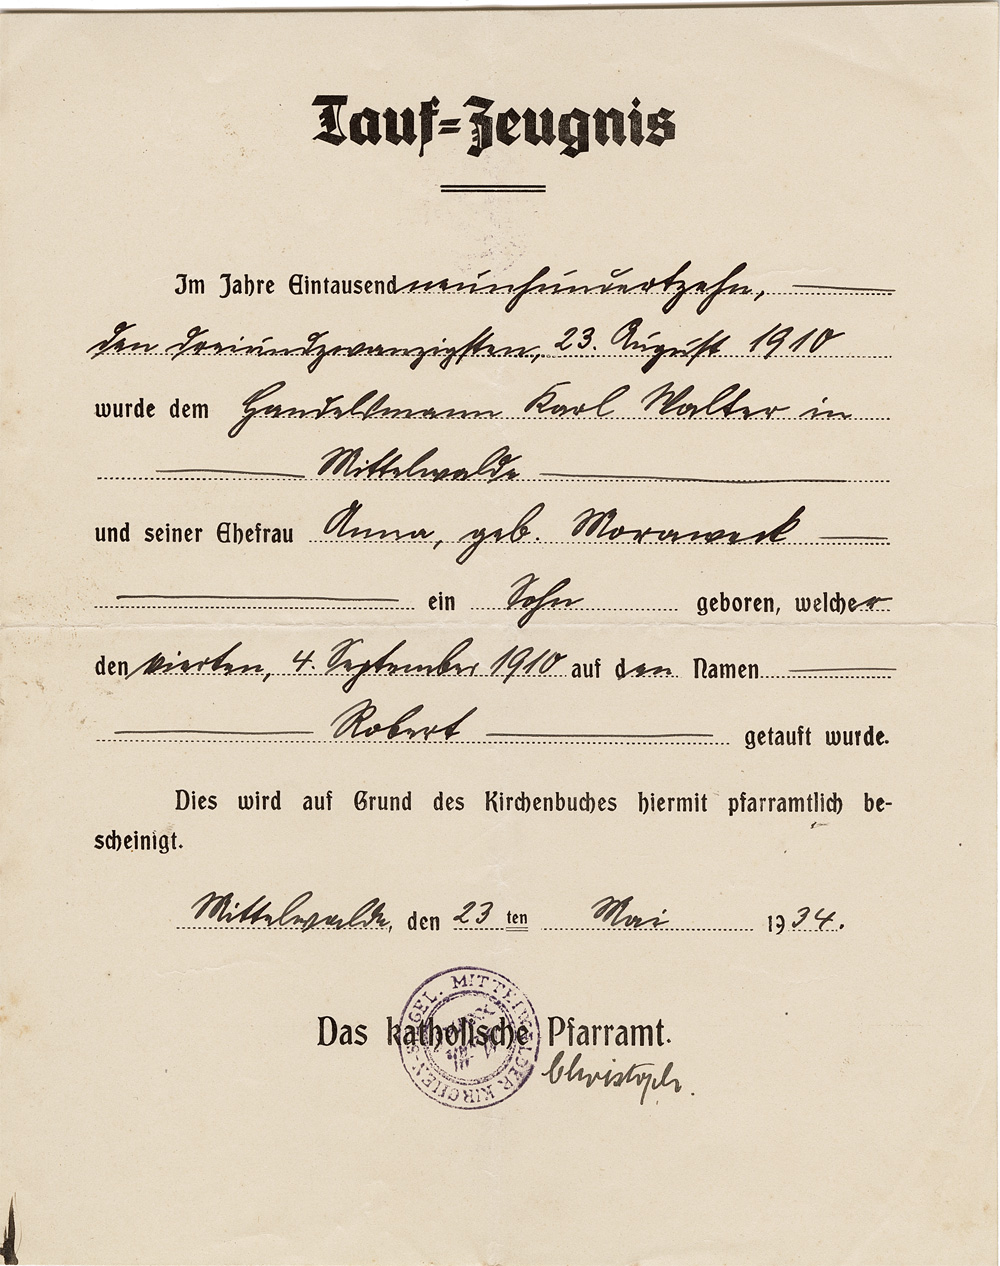 Tauf=Zeugnis
Im Jahre Eintausend neunhundertzehn,
den dreiundzwanzigsten, 23. August 1910
wurde dem Handelsmann Karl Walter in
Mittelwalde
und seiner Ehefrau Anna, geb. Moraweck
ein Sohn geboren, welcher
den vierten, 4. September 1910 auf den Namen
Robert getauft wurde.
Dies wird auf Grund des Kirchenbuches hiermit pfarramtlich be-
scheinigt.
Mittelwalde, den 23 ten Mai 1934.
Das katholische Pfarramt.
MITTELWALDER KIRCHEN-SIEGEL.
Christoph.